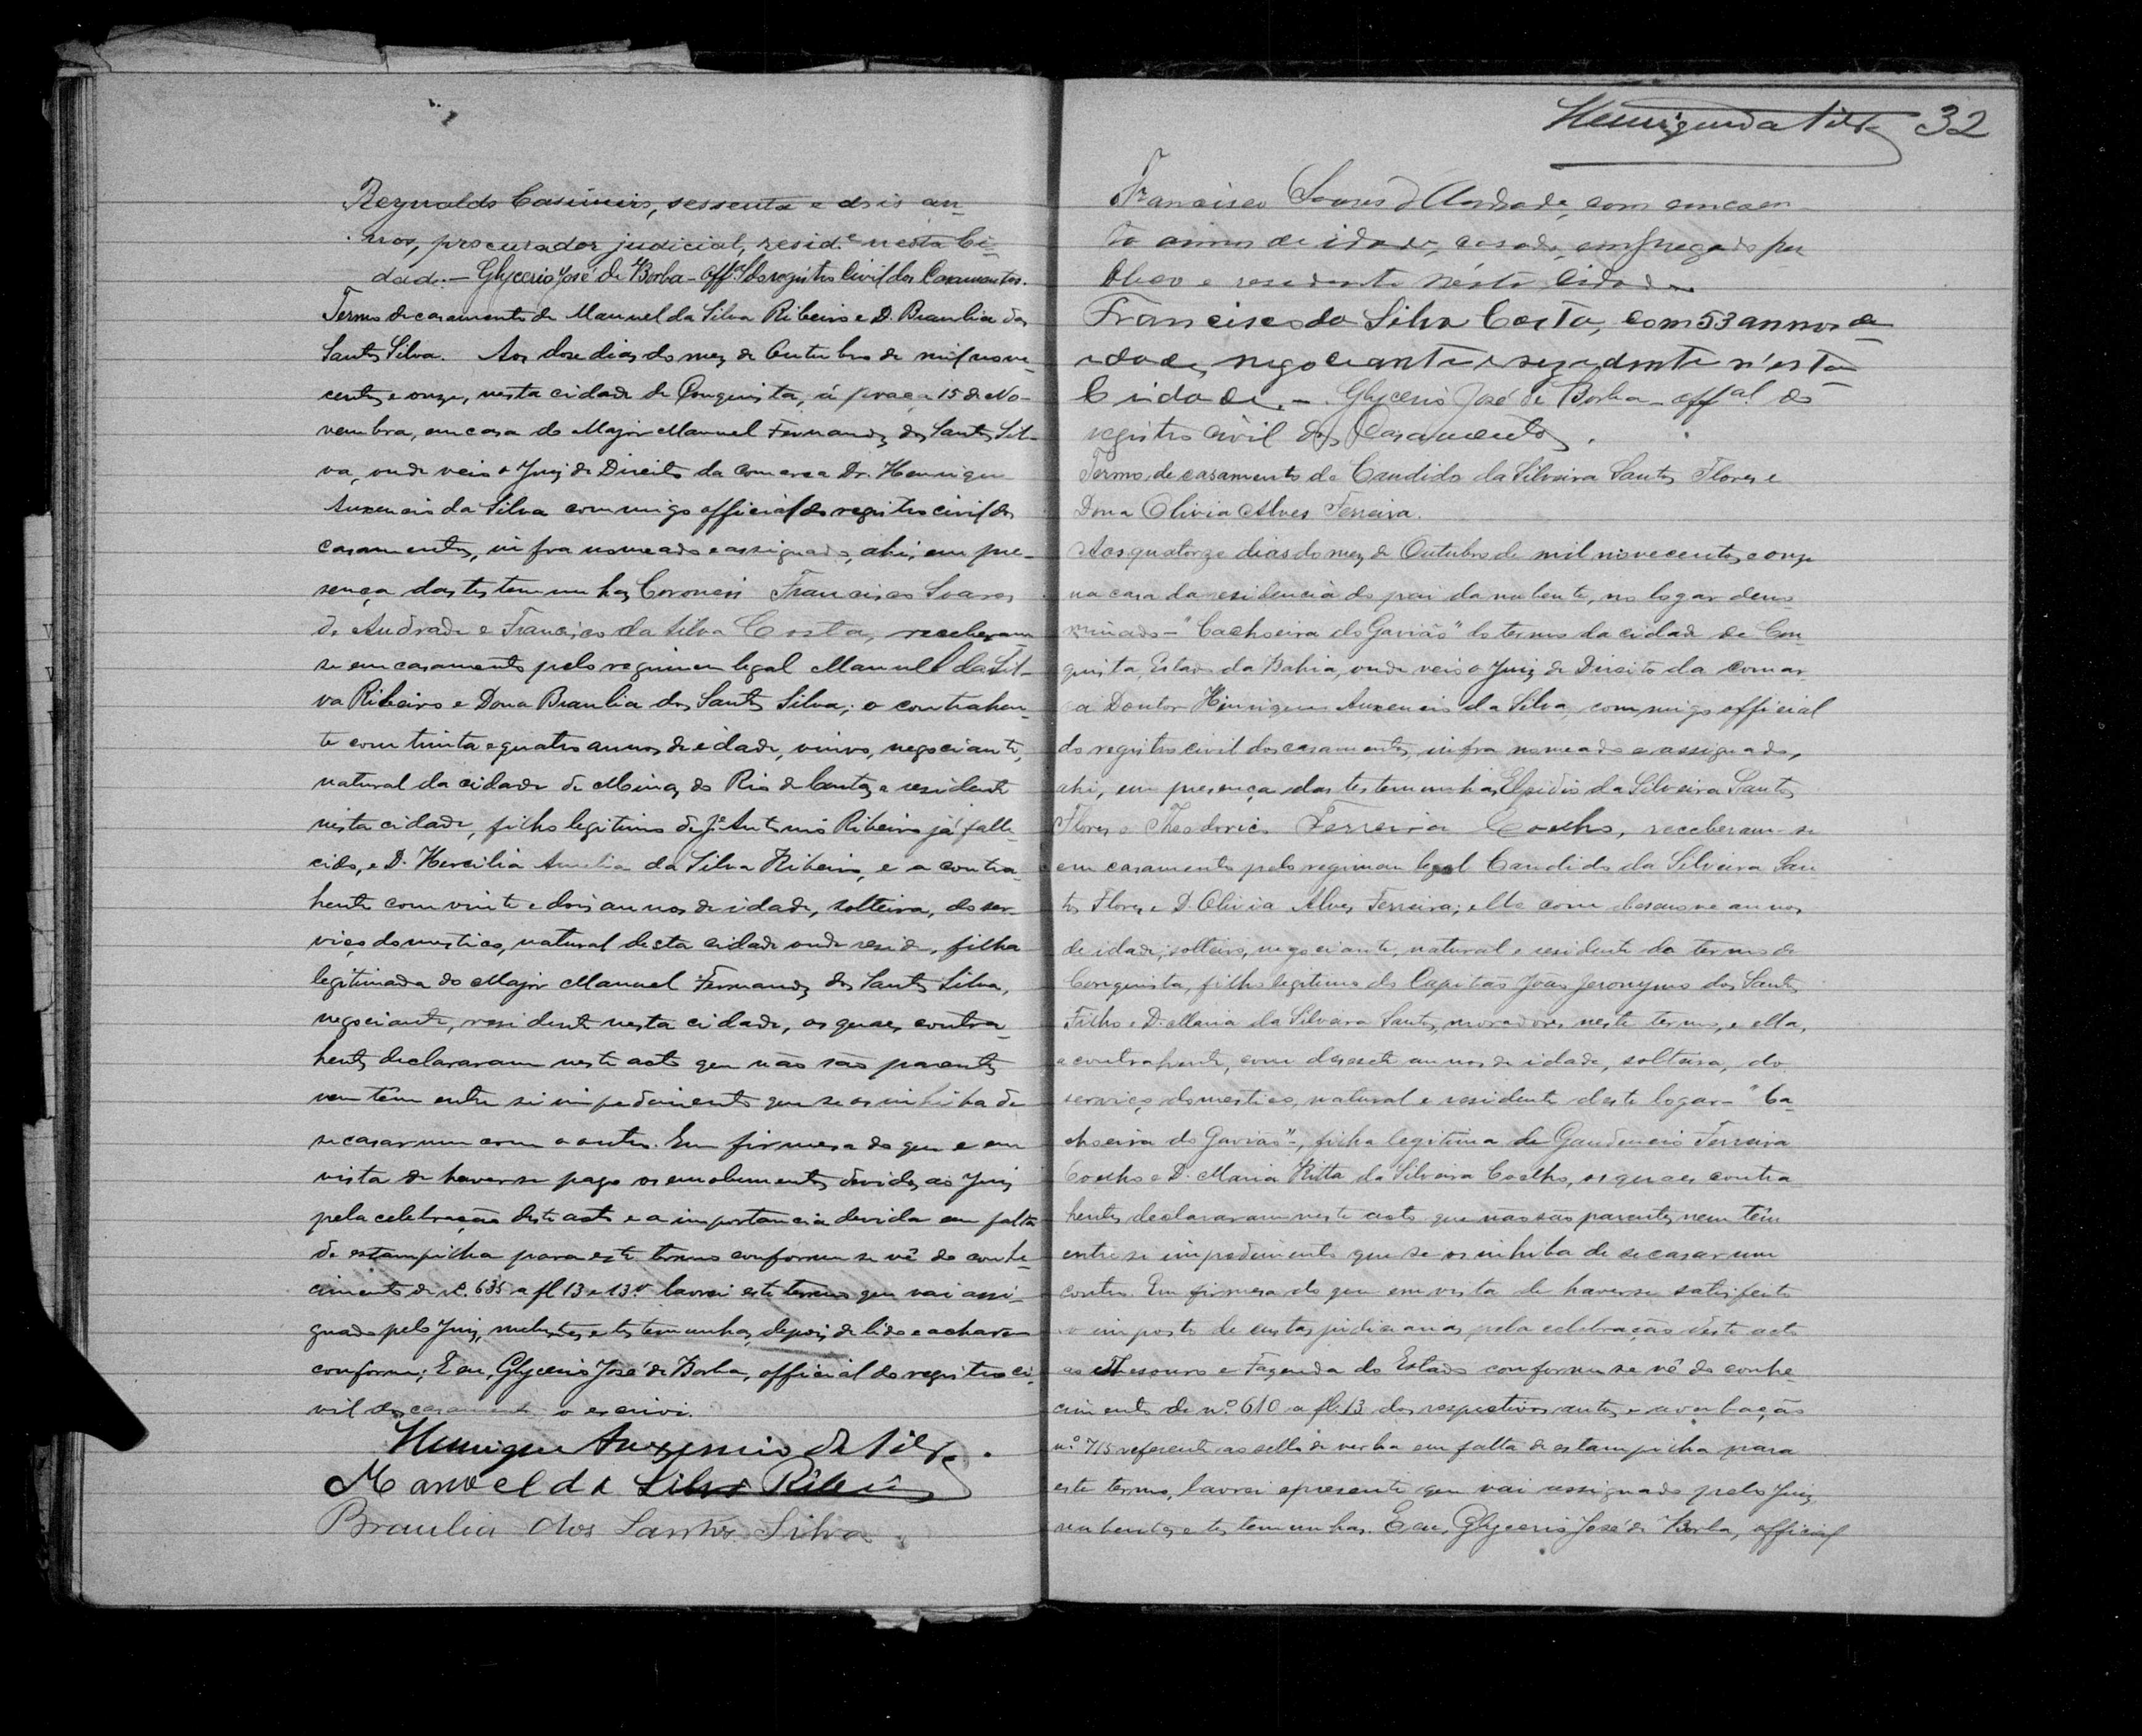 Reynaldo Casimiro, sessenta e dois an-
nos, procurador judicial, resid.e nesta Ci-
dade. — Glycerio José de Borba - Offal do registro Civil dos Casamentos.
Termo de casamento de Manuel da Silva Ribeiro e D. Braulia dos
Santos Silva. Aos dose dias do mez de Outubro de mil nove-
centos e onze, nesta cidade de Conquista, á praça 15 de No-
vembro, em casa do Major Manuel Fernandes dos Santos Sil-
va, onde veio o Juiz de Direito da comarca Dr. Henrique
Auxencio da Silva commigo official do registro civil dos
casamentos, infra nomeado e assignado, ahi, em pre-
sença das testemunhas Coroneis Francisco Soares
de Andrade e Francisco da Silva Costa, receberam-
se em casamento pelo regimen legal Manuel da Sil-
va Ribeiro e Dona Braulia dos Santos Silva; o contrahen-
te com trinta e quatro annos de edade, viuvo, negociante,
natural da cidade de Minas do Rio de Contas e residente
nesta cidade, filho legitimo de Je Antonio Ribeiro já falle-
cido, e D. Hercilia Amelia da Silva Ribeiro, e a contra-
hente com vinte e dois annos de idade, solteira, do ser-
viço domestico, natural desta cidade onde reside, filha
legitimada do Major Manuel Fernandes dos Santos Silva,
negociante, residente nesta cidade, os quaes contra-
hentes declararam neste acto que não são parentes
nem têm entre si impedimento que se os inhiba de
se casar um com o outro. Em firmesa do que e em
vista de haver-se pago os emolumentos devidos ao Juiz
pela celebração deste acto e a importancia devida em falta
de estampilha para este termo conforme se vê do conhe-
cimento de nº. 635 a fl 13 e 13v lavrei este termo que vai assi-
gnado pelo Juiz, nubentes e testemunhas, depois de lido e acharem
conforme; E eu, Glycerio José de Borba, official do registro ci-
vil dos casamentos o escrivi.
Henrique Auxencio da Silva.
Manoel da Silva Ribeiro
Braulia dos Santos Silva
Henrique da Silva 32
Francisco Soares d'Andrade, com cincoen-
ta annos de idade, casado, empregado pu
blico e residente nésta Cidade
Francisco da Silva Costa, com 53 annos de
edade, negociante e rezidente n'esta
Cuidade. — Glycerio José de Borba - offal do
registro civil dos Casamentos.
Termo de casamento de Candido da Silveira Santos Flores e
Dona Olivia Alves Ferreira.
Aos quatorze dias do mez de Outubro de mil novecentos e onze
na casa da residencia do pai da nubente, no logar deno-
minado - "Cachoeira do Gavião" do termo da cidade de Con-
quista, Estado da Bahia, onde veio o Juiz de Direito da comar-
ca Doutor Henrique Auxencio da Silva, commigo official
do registro civil dos casamentos, infra nomeado e assignado,
ahi, em presença das testemunhas, Elpidio da Silveira Santos
Flores e Theodorico Ferreira Coelho, receberam-se
em casamento pelo regimen legal Candido da Silveira San-
tos Flores e D. Olivia Alves Ferreira; elle com desenove annos
de idade, solteiro, negociante, natural e residente do termo de
Conquista, filho legitimo do Capitão João Jeronymo dos Santos
Filho e D. Maria da Silveira Santos, moradores neste termo, e ella,
a contrahente, com desesete annos de idade, solteira, do
serviço domestico, natural e residente deste logar - "Ca-
choeira do Gavião" -, filha legitima de Gaudencio Ferreira
Coelho e D. Maria Ritta da Silveira Coelho, os quaes contra-
hentes declararam neste acto que não são parentes, nem têm
entre si impedimento que se os inhiba de se casar um
contro. Em firmesa do que em vista de haver-se satisfeito
o imposto de custas judiciarias pela celebração deste acto
ao Thesouro e Fazenda do Estado conforme se vê do conhe-
cimento de nº. 610 a fl. 13 dos respectivos autos e averbação
nº. 715 referente ao sello de verba em falta de estampilha para
este termo, lavrei o presente que vai assignado pelo Juiz
nubentes e testemunhas. E eu, Glycerio José de Borba, official